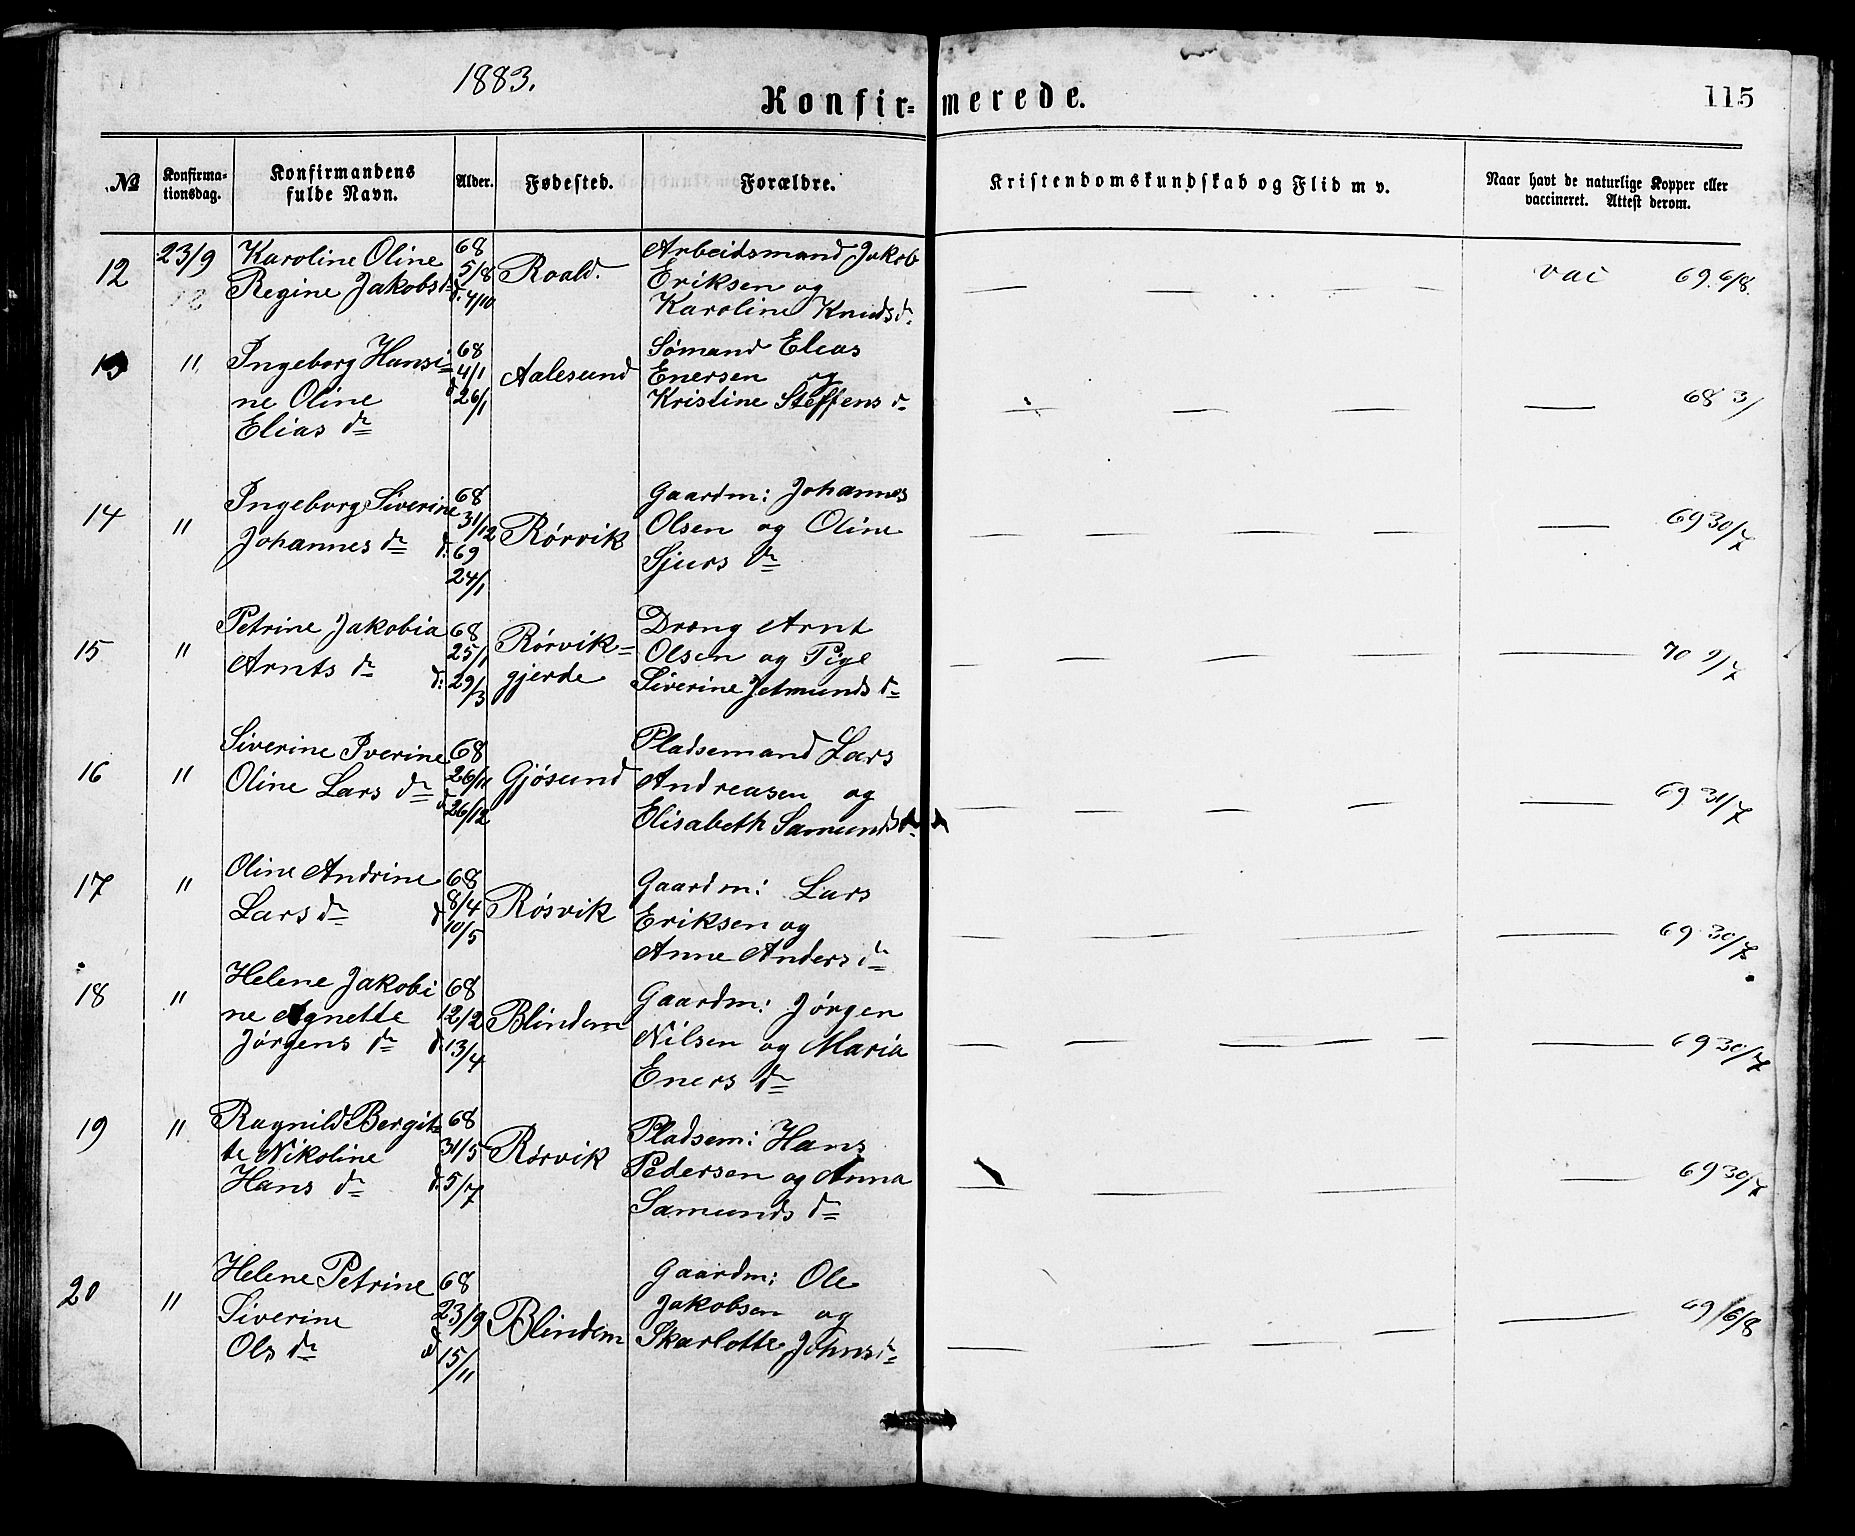 1883.
Konfirmerede.
115
№
Konfirma-
tionsdag.
Konfirmandens
fulde Navn.
Alder.
Fødested.
Forældre.
Kristendomskundskab og Flid m v.
Naar havt de naturlige Kopper eller
vaccineret. Attest derom.
12 23/9 Karoline Oline 68 Roald. Arbeidsmand Jakob
Regine Jakobs dr 5/8 Eriksen og
d. 4/10 Karoline Knuds dr
— — — — vac 69. 6/8.
13 " Ingeborg Hansi- 68 Aalesund Sømand Elias
ne Oline 4/1 Enersen og
Elias dr d 26/1 Kristine Steffens dr
— — — — 68 3/
14 " Ingeborg Siverine 68 Rørvik Gaardm: Johannes
Johannes dr 31/12 Olsen og Oline
d. 69 Sjurs dr
24/1
— — — — — 69 30/7
15 " Petrine Jakobia 68 Rørvik= Dreng Arnt
Arnts dr 25/1 gjerde Olsen og Pige
d: 29/3 Siverine Jetmunds dr
— — — — — 70 9/7
16 " Siverine Iverine 68 Gjøsund Pladsemand Lars
Oline Lars dr 26/11 Andreasen og
d 26/12 Elisabeth Samunds dr
— — — — — 69 31/7
17 " Oline Andrine 68 Røsvik Gaardm: Lars
Lars dr 8/4 Eriksen og
d 10/5 Anne Anders dr
— — — — 69 30/7
18 " Helene Jakobi 68 Blindem Gaardm: Jørgen
ne Agnette 12/2 Nilsen og Maria
Jørgens dr d. 13/4 Eners dr
— — — — — — 69 30/7
19 " Ragnild Bergit- 68 Rørvik Pladsem: Hans
te Nikoline 31/5 Pedersen og Anna
Hans dr d. 5/7 Samunds dr
— — — — 69 30/7
20 " Helene Petrine 68 Blindem Gaardm: Ole
Siverine 23/9 Jakobsen og
Ols dr d 15/11 Skarlotte Johns dr
— — — — 69 6/8